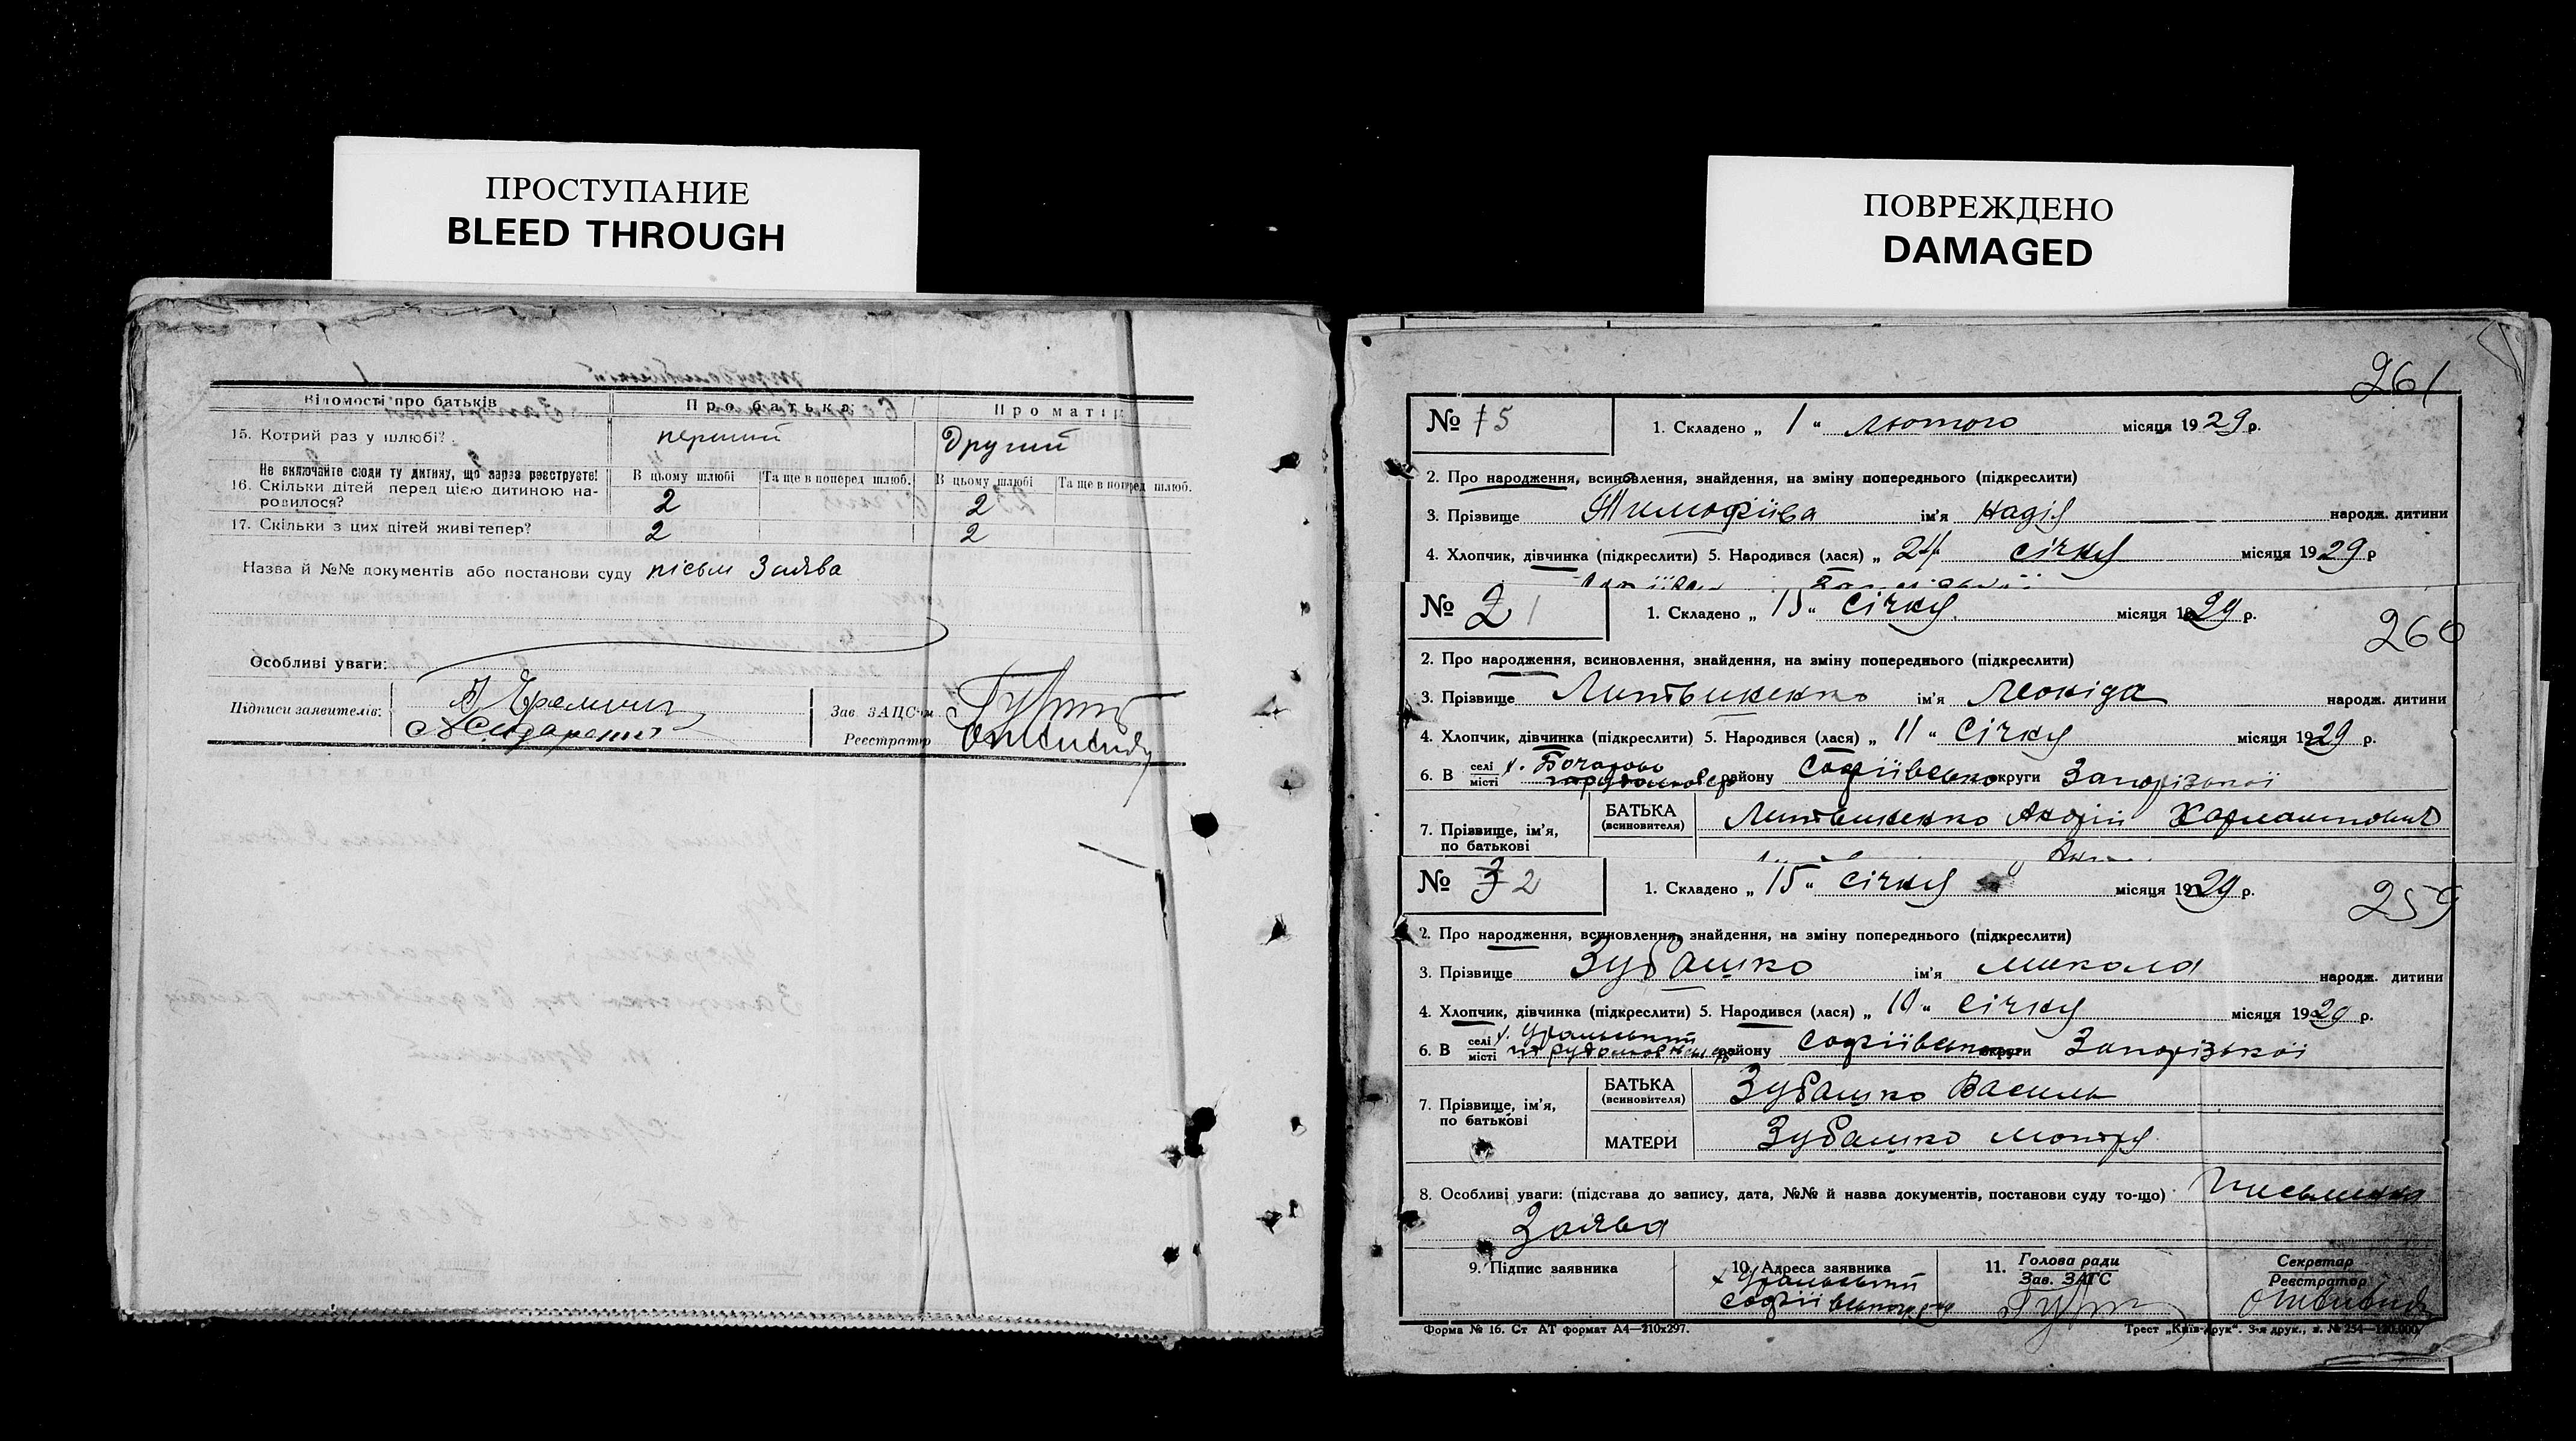 ПРОСТУПАНИЕ
BLEED THROUGH
Відомості про батьків Про батька Про матір
15. Котрий раз у шлюбі? перший Другий
Не включайте сюди ту дитину, що зараз реєструєте!
16. Скільки дітей перед цією дитиною народилося?
В цьому шлюбі Та ще в поперед. шлюб. В цьому шлюбі Та ще в поперед. шлюб.
2 2
17. Скільки з цих дітей живі тепер? 2 2
Назва й №№ документів або постанови суду письм Заява
Особливі уваги:
Підписи заявителів:
Зав. ЗАЦС'ом
Реєстратор
ПОВРЕЖДЕНО
DAMAGED
261
№ 5 1. Складено „ 1 “ лютого місяця 1929 р.
2. Про народження, всиновлення, знайдення, на зміну попереднього (підкреслити)
3. Прізвище Тимофіїва ім'я Надія народж. дитини
4. Хлопчик, дівчинка (підкреслити) 5. Народився (лася) „ 24 січня місяця 1929 р
№ 1 1. Складено „ 15 “ січня місяця 1929 р.
260
2. Про народження, всиновлення, знайдення, на зміну попереднього (підкреслити)
3. Прізвище Литвиненко ім'я Леоніда народж. дитини
4. Хлопчик, дівчинка (підкреслити) 5. Народився (лася) „ 11 “ Січня місяця 1929 р.
6. В селі місті х. Бочарово району Софіївсько округи Запорізької
7. Прізвище, ім'я, по батькові
БАТЬКА (всиновителя) Литвиненко Андрій
№ 3 2 1. Складено „ 15 “ січня місяця 1929 р.
259
2. Про народження, всиновлення, знайдення, на зміну попереднього (підкреслити)
3. Прізвище Зубашко ім'я Микола народж. дитини
4. Хлопчик, дівчинка (підкреслити) 5. Народився (лася) „ 10 “ січня місяця 1929 р.
6. В селі місті х. Уральський району Софіївського округи Запорізької
7. Прізвище, ім'я, по батькові
БАТЬКА (всиновителя) Зубашко Василь
МАТЕРИ Зубашко Мотря
8. Особливі уваги: (підстава до запису, дата, №№ й назва документів, постанови суду то-що) Письменна
Заява
9. Підпис заявника 10. Адреса заявника 11. Голова ради Зав. ЗАГС Секретар Реєстратор
х Уральський
Форма № 16. Ст АТ формат А4—210х297. Трест „Київ-друк“. 3-я друк., з. № 254—